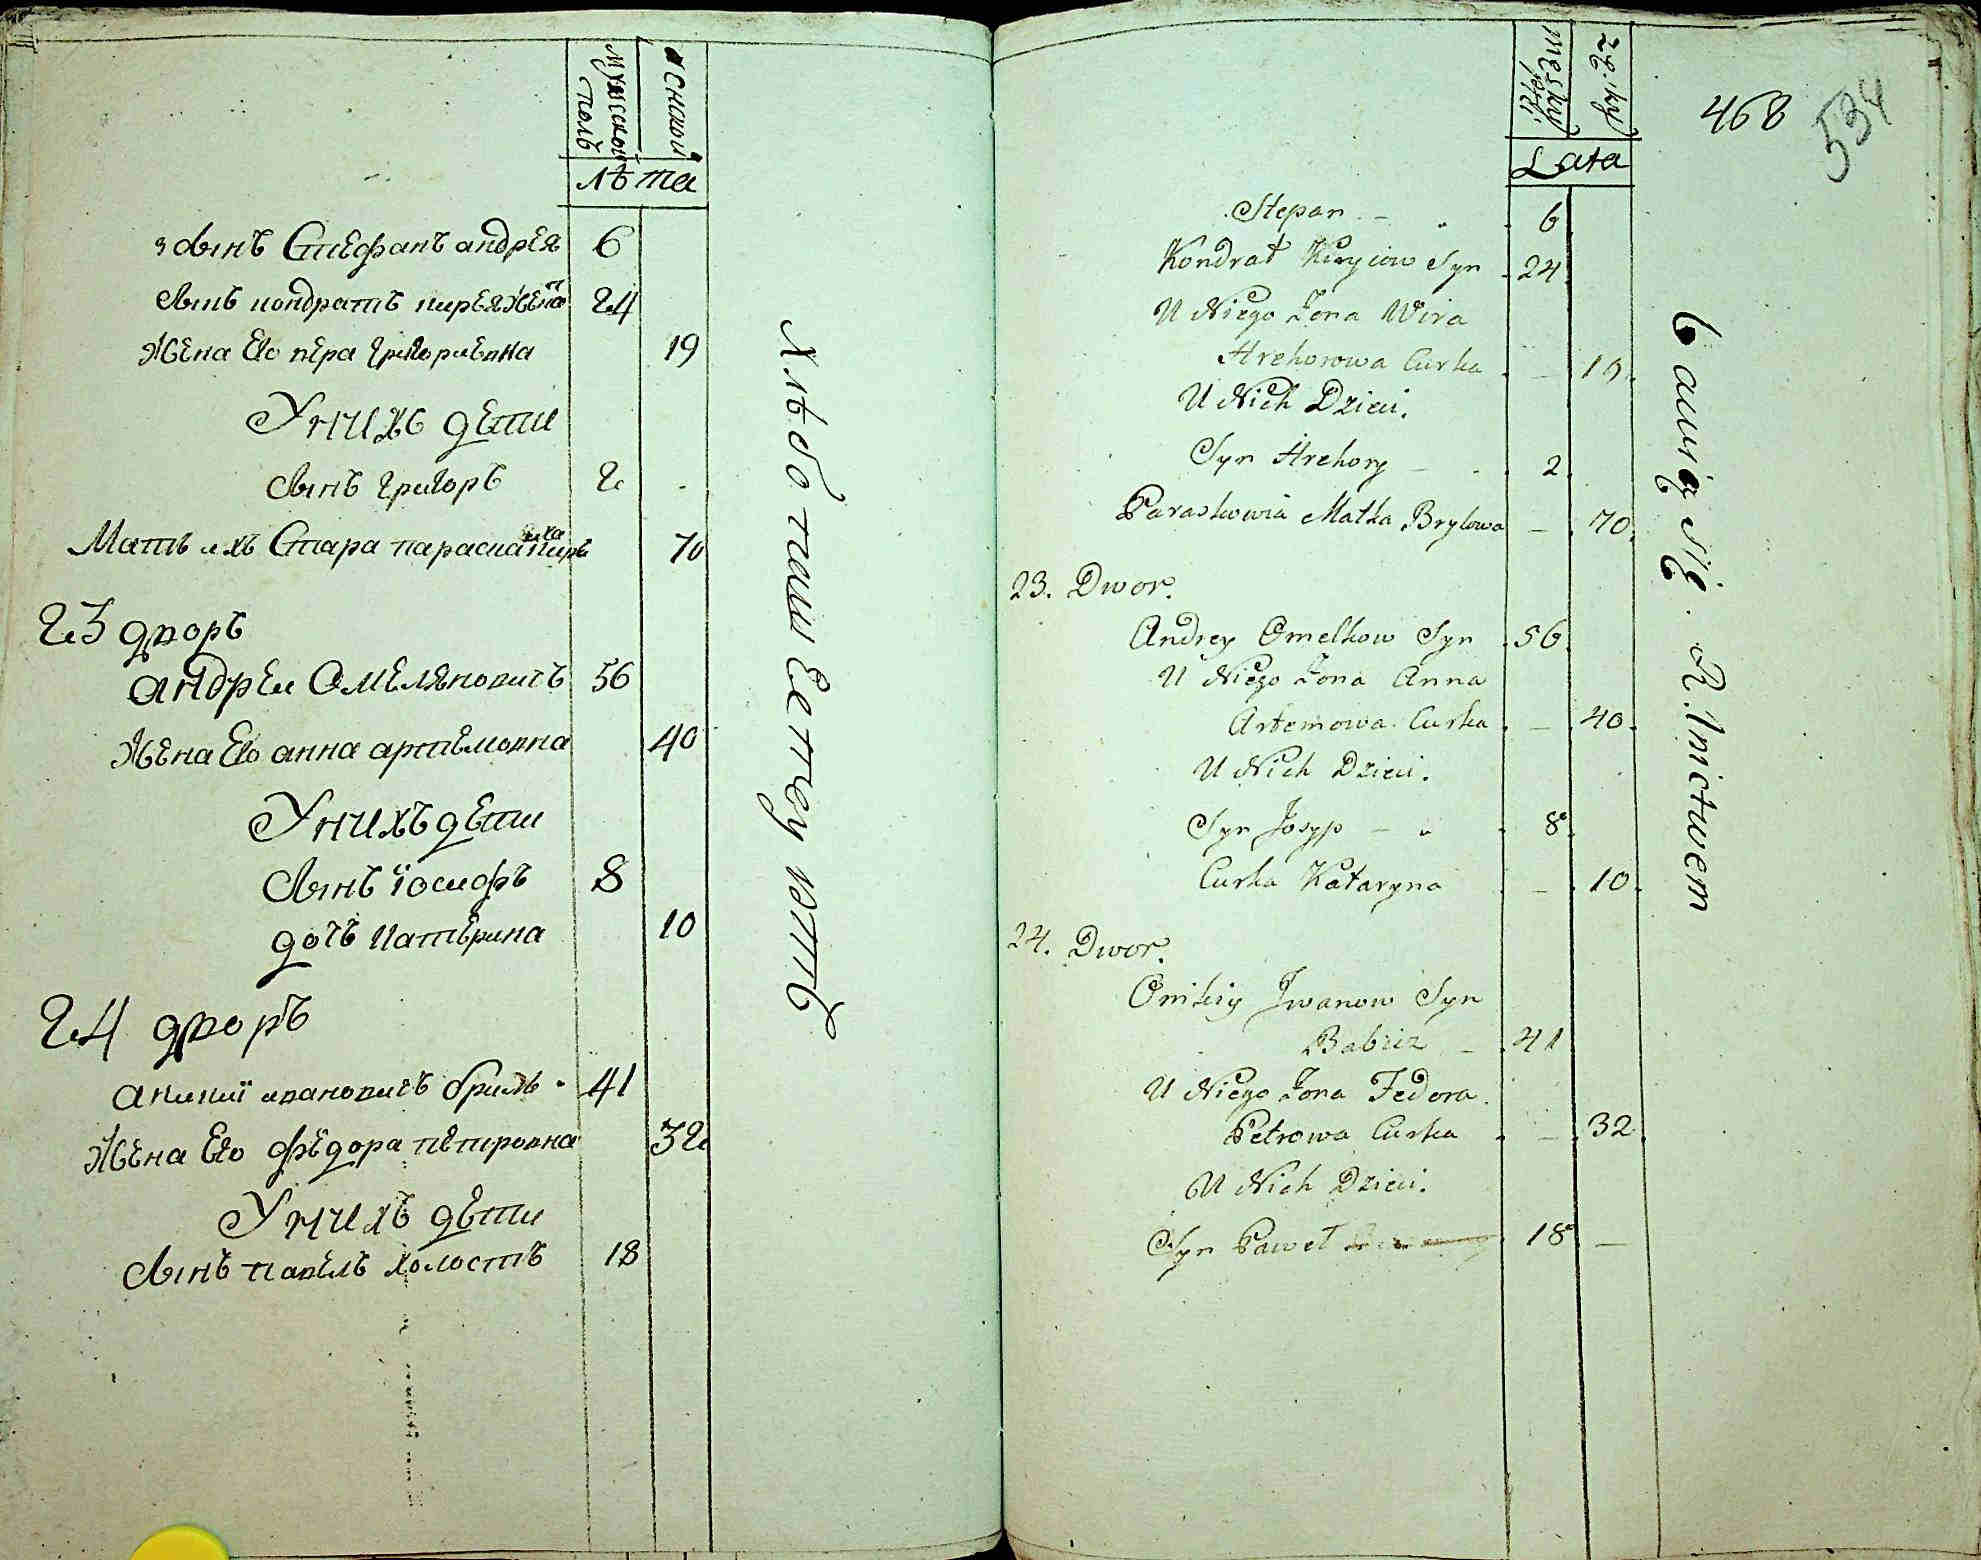 мужской полъ
женской
лѣта
3 сынъ Стефанъ андрея 6
сынъ кондратъ кирея женатъ 24
жена Его вера григориевна 19
У нихъ дети
сынъ григоръ 2
Мать ихъ Стара параска 70
23 дворъ
андреи Омеляновичъ 56
жена Его анна артемовна 40
У нихъ дети
сынъ їосифъ 8
дочь катерина 10
24 дворъ
аникиї ивановичъ бриль 41
жена Его федора петровна 32
У нихъ дети
сынъ павелъ холостъ 18
Хлѣбопашествуютъ
męsky płci
żęsky
Lata
468
534
Stepan 6
Kondrat Kiryiow Syn 24
U Niego Żona Wira
Hrehorowa Curka 19
U Nich Dzieci.
Syn Hrehory 2
Paraskowia Matka Brylowa 70
23. Dwor.
Andrey Omelkow Syn 56
U Niego Żona Anna
Artemowa Curka 40
U Nich Dzieci.
Syn Josyp 8
Curka Kataryna 10
24. Dwor.
Onikiy Jwanow Syn
Babicz 41
U Niego Żona Fedora
Petrowa Curka 32
U Nich Dzieci.
Syn Paweł 18
bawią się Rolnictwem